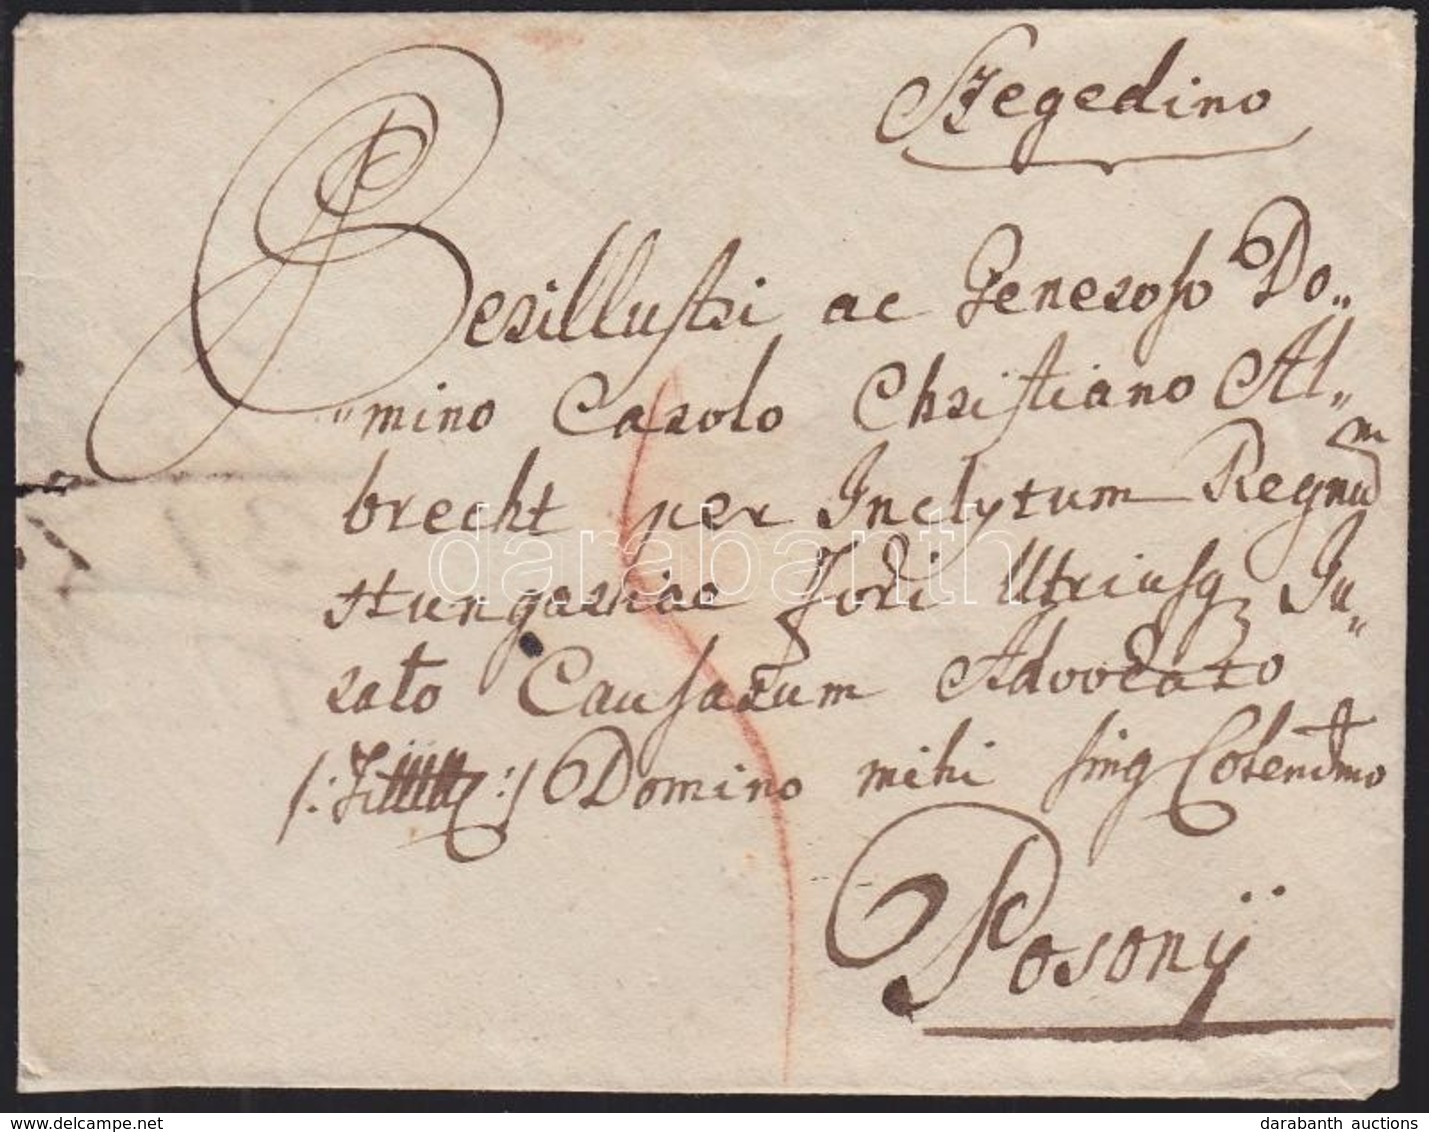 Szegedino
Perillustri ac Generoso Do„
„mino Carolo Christiano Al„
brecht per Inclytum Regnũ m
Hungariae Fori Utriusq Ju„
rato Causarum Advocato
/: :/ Domino mihi sing Colendmo
Posonÿ
darabanth
darabanth auctions